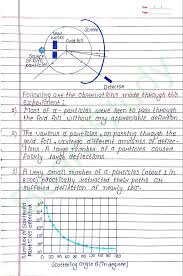 Screen
Lead
Gold foil
Source
of
particles
Detector
Following are the observations made through this
Experiment :
1) Most of α - particles were seen to pass through
the gold foil without any appreciable deflection.
2) The various α particles, on passing through the
gold foil, undergo different amounts of deflec-
tions. A large number of α particles caused
fairly large deflections.
3) A very small number of α-particles (about 1 in
8000) practically retracted their paths or
suffered deflection of nearly 180°.
Number of scattered
particles detected
0 20 40 60 80 100 120 140 160 180
Scattering angle θ (in degree)